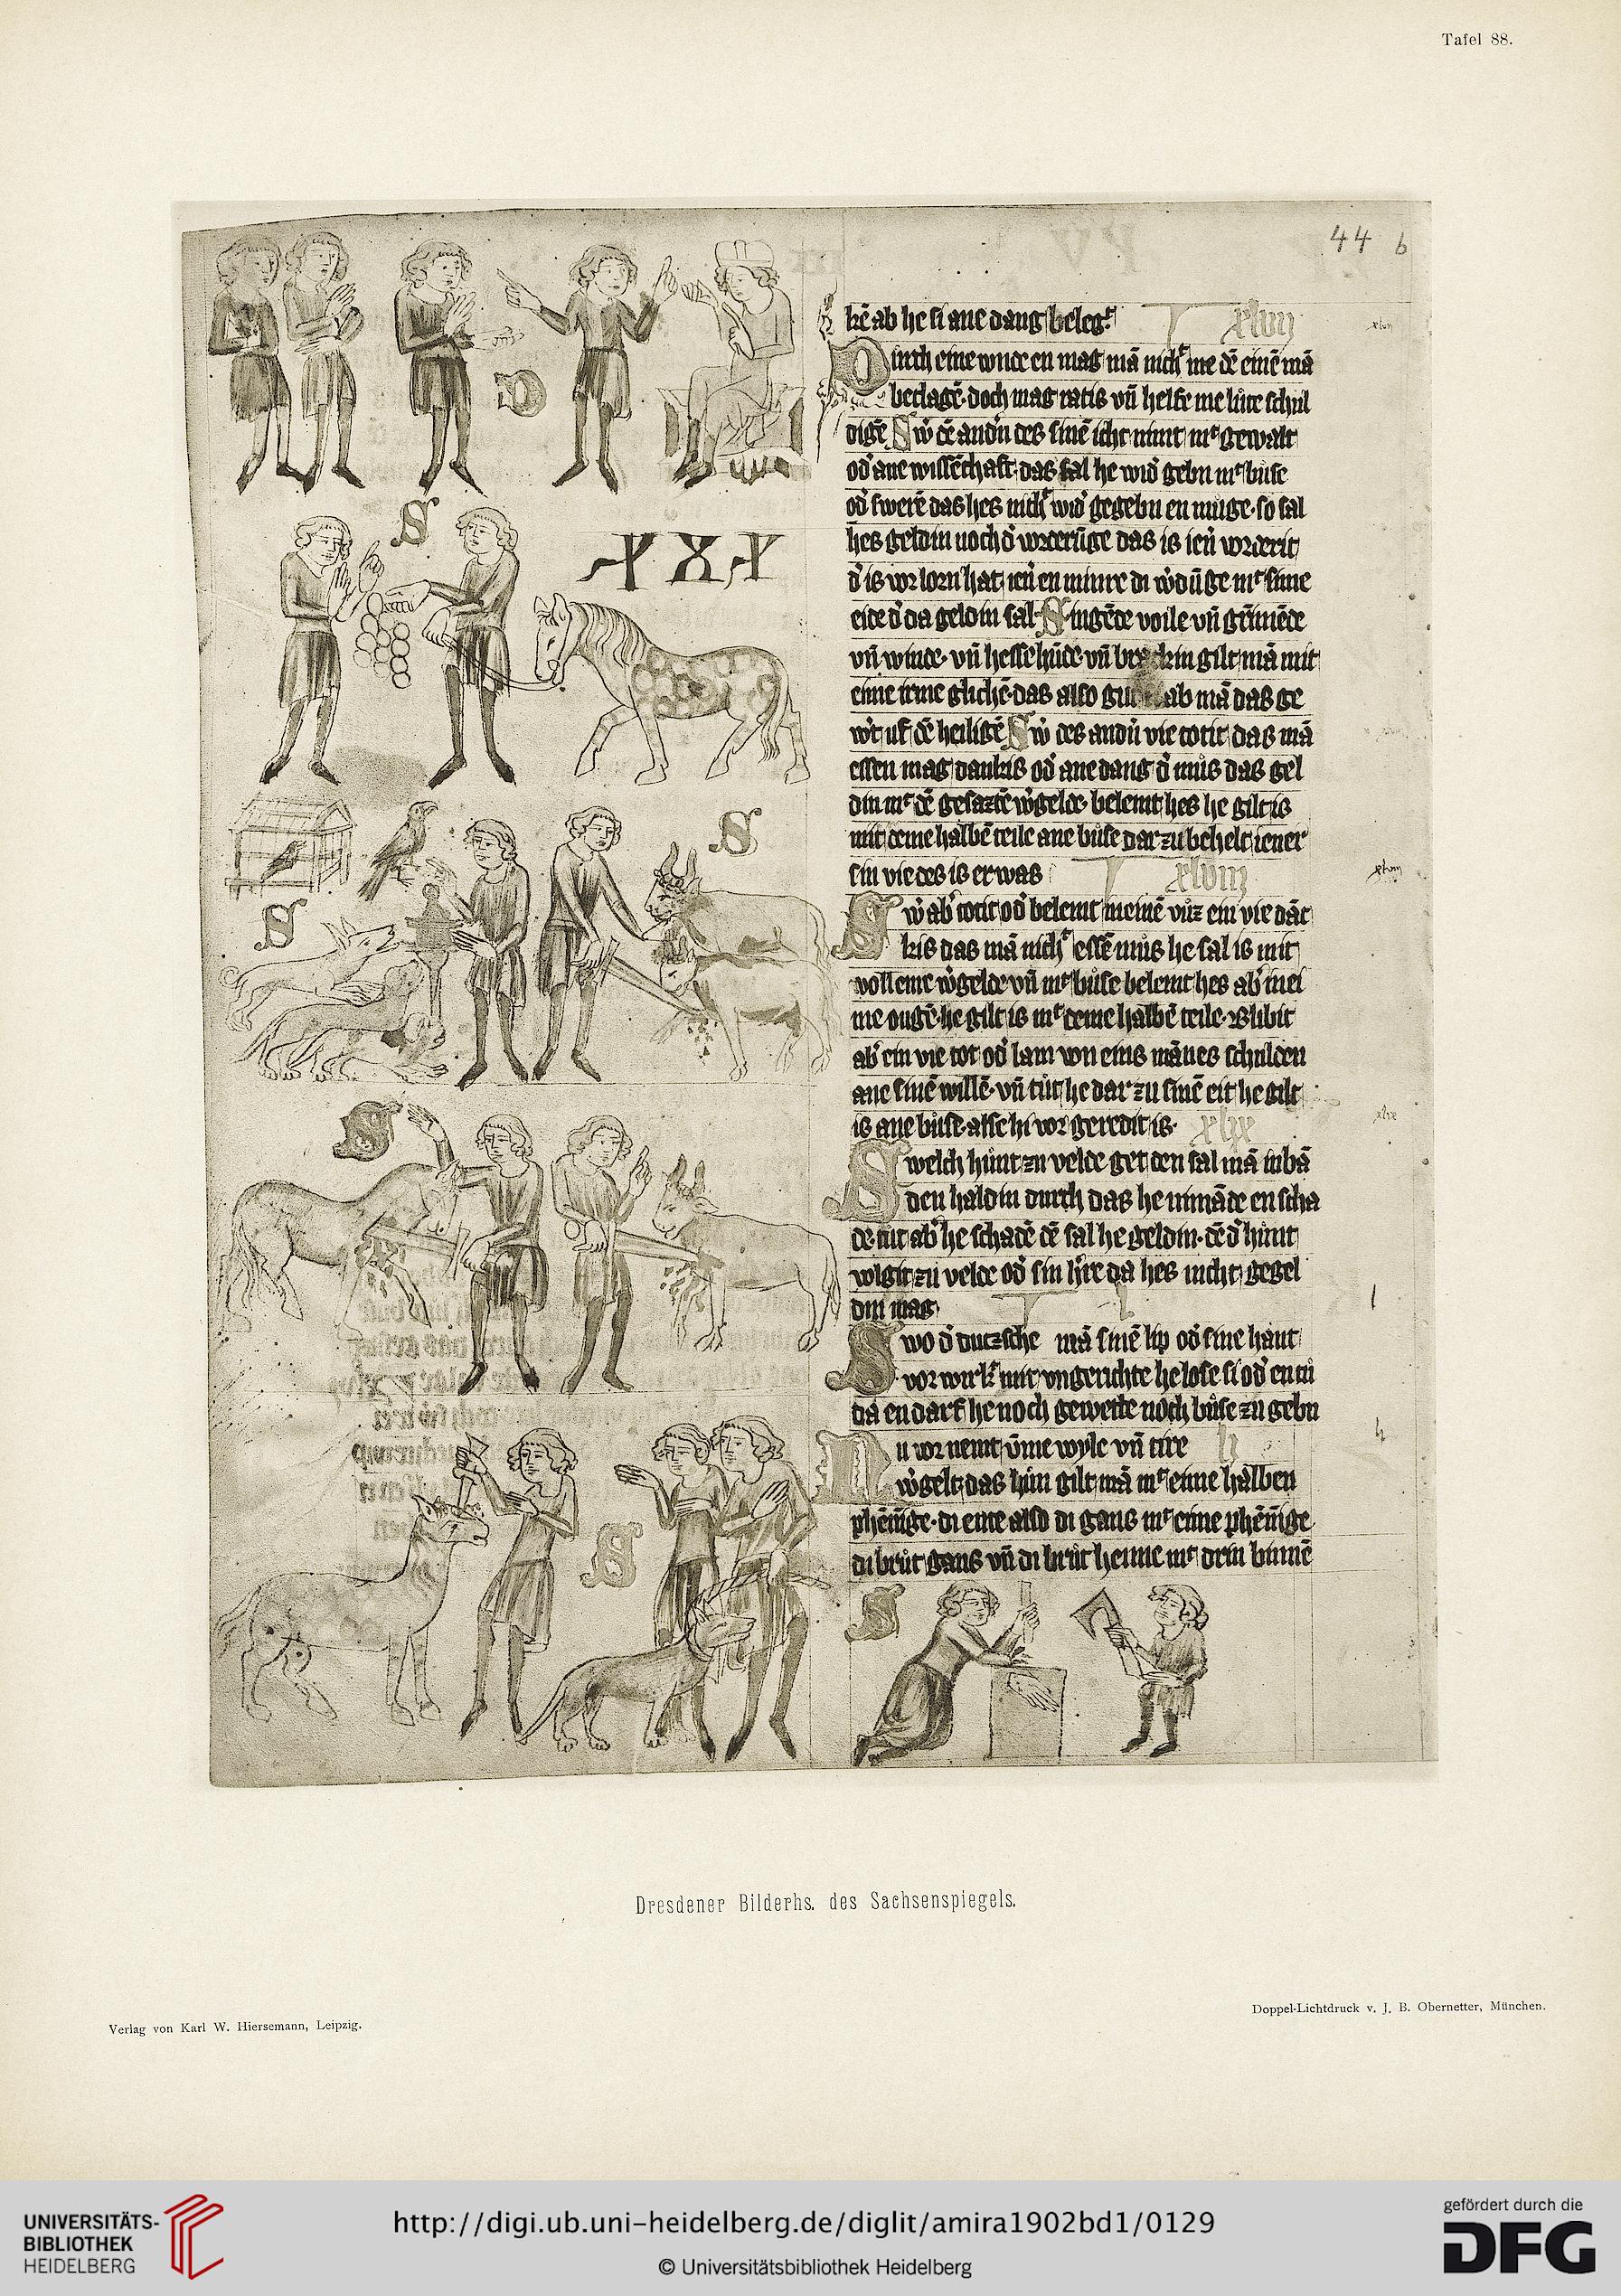 Tafel 88.
44 b
kē ab he si ane dang beleg͛t xlvij
Durch eine wnde en mag mā nich͛t me dē einē mā
beclagē. doch mag ratis vn̄ helfe me lute schul
digē S w͛ dē and͛n des sinē icht nimt m͛t gewalt
od͛ ane wissēchaft das sal he wid͛ gebn m͛t buse
od͛ swerē das hes nich͛t wid͛ gegebn en muge. so sal
hes geldin noch d͛ word͛ūge das is ien͛ vorderit
d͛ is vorlorn hat ien͛ en minre di w͛dūge m͛t sime
eide d͛ da geldin sal. Singēde voile vn̄ g͛mēde
vn̄ winde. vn̄ hessehūde. vn̄ brackin gilt mā mit
eime irme glichē. das also gut ab mā das ge
w͛t uf dē heiligē S w͛ des and͛n vie totit das mā
essen mag dankis od͛ ane dang d͛ mus das gel
din m͛t dē gesaztē w͛gelde. belemt hes he gilt is
mit deme halbē teile ane buse dar zu behelt iener
sin vie des is er was xlviij
S w͛ ab͛ totit od͛ belemt ineinē vuz ein vie dāc
kis das mā nich͛t essē mus he sal is mit
volleme w͛gelde vn̄ m͛t buse belemt hes ab͛ inei
me ougē. he gilt is m͛t deme halbē teile. Blibit
ab͛ ein vie tot od͛ lam von eins mānes schulden
ane sinē willē. vn̄ tut he dar zu sinē eit he gilt
is ane buse. alse hi vor geredit is. xlix
Swelch hunt zu velde get den sal mā inbā
den haldin durch das he nimāde en scha
de. tut ab͛ he schadē dē sal he geldin. dē d͛ hunt
volgit zu velde od͛ sin h͛re da hes nicht gegel
din mag. l
Swo d͛ dutzsche mā sinē lip od͛ sine hant
vorwirk͛t mit vngerichte he lose si od͛ en tu
da en darf he noch gewette noch buse zu gebn
Nu vornemt ūme voyle vn̄ tire li
w͛gelt das hun gilt mā m͛t eime halben
phēnīge. di ente also di gans m͛t eime phēnīge
di brut gans vn̄ di brut henne m͛t drin binnē
Dresdener Bilderhs. des Sachsenspiegels.
Verlag von Karl W. Hiersemann, Leipzig.
Doppel-Lichtdruck v. J. B. Obernetter, München.
UNIVERSITÄTS-
BIBLIOTHEK
HEIDELBERG
http://digi.ub.uni-heidelberg.de/diglit/amira1902bd1/0129
© Universitätsbibliothek Heidelberg
gefördert durch die
DFG